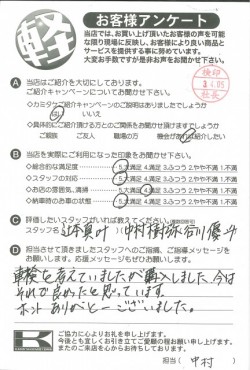 軽
お客様アンケート
当店では、お買い上げ頂いたお客様の声を可能
な限り現場に反映し、お客様により良い商品と
サービスを提供する事に努めています。
大変お手数ですが是非お声をお聞かせ下さい。
検印
社長
A 当店はご紹介を大切にしております。
ご紹介キャンペーンについてお聞かせ下さい。
◇カミタケご紹介キャンペーンのご説明はありましたでしょうか
はい いいえ
◇具体的にご紹介頂ける方とのご関係をお聞かせ頂けますでしょうか
ご親族 ご友人 職場の方 機会があれば紹介したい
B 当店を実際にご利用になった印象をお聞かせ下さい。
◇総合的な満足度 5.大満足 4.満足 3.ふつう 2.やや不満 1.不満
◇スタッフの対応 5.大満足 4.満足 3.ふつう 2.やや不満 1.不満
◇お店の雰囲気、清掃 5.大満足 4.満足 3.ふつう 2.やや不満 1.不満
◇納車時のお車の状態 5.大満足 4.満足 3.ふつう 2.やや不満 1.不満
C 評価したいスタッフがいれば教えてください。
スタッフ名 辻本真叶 中村樹弥 谷川優斗
D 担当させて頂きましたスタッフへのご指摘、ご相談、ご感想メッセージを
お願い致します。応援メッセージもぜひお願いします。
車検を考えていましたが購入しました。今は
それで良かったと思っています。
ホントありがとーございました。
K
ご協力に心よりお礼を申し上げます。
今後とも宜しくお引き立てご愛顧の程お願い申し上げます。
またのご来店を心からお待ちしております。
担当( 中村 )